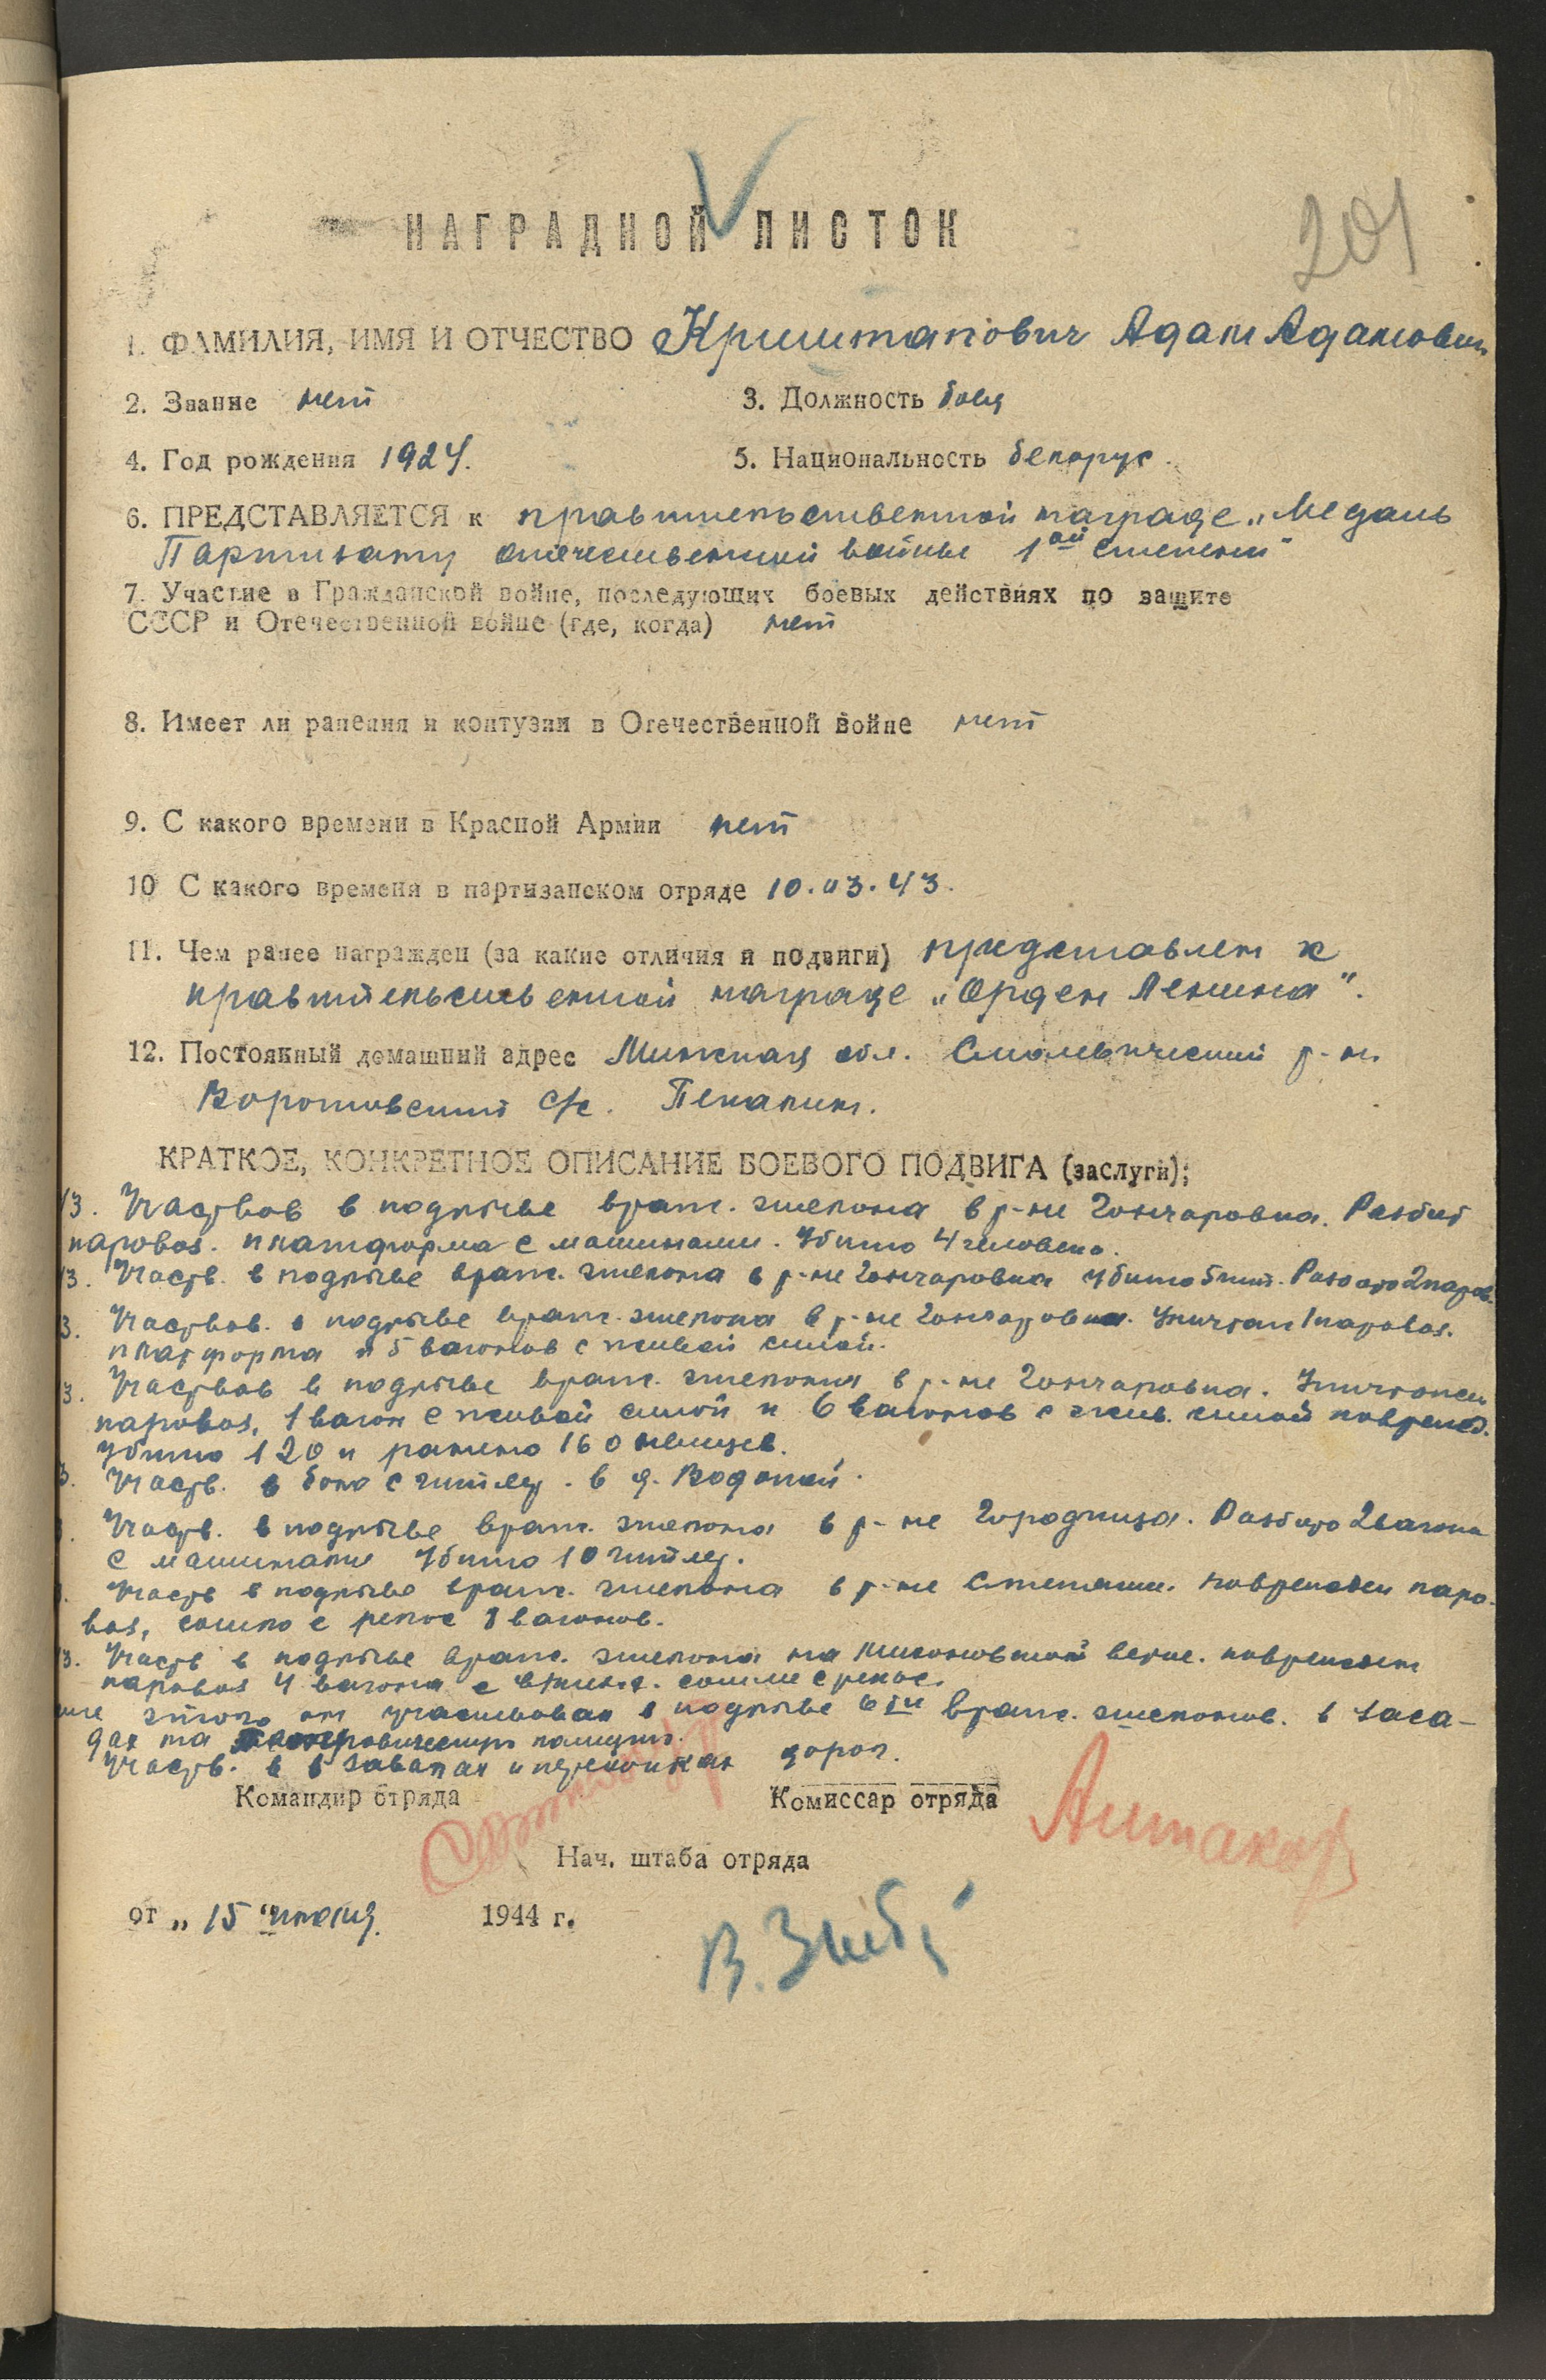 201
НАГРАДНОЙ ЛИСТОК
1. ФАМИЛИЯ, ИМЯ И ОТЧЕСТВО Криштапович Адам Адамович
2. Звание нет 3. Должность боец
4. Год рождения 1924. 5. Национальность белорус.
6. ПРЕДСТАВЛЯЕТСЯ к правительственной награде „Медаль
Партизану отечественной войны 1ой степени"
7. Участие в Гражданской войне, последующих боевых действиях по защите
СССР и Отечественной войне (где, когда) нет
8. Имеет ли ранения и контузии в Отечественной войне нет
9. С какого времени в Красной Армии нет
10 С какого времени в партизанском отряде 10.03.43.
11. Чем ранее награжден (за какие отличия и подвиги) представлен к
правительственной награде „Орден Ленина".
12. Постоянный домашний адрес Минская обл. Смолевичский р-н.
с/с. Пекалин.
КРАТКОЕ, КОНКРЕТНОЕ ОПИСАНИЕ БОЕВОГО ПОДВИГА (заслуги);
3. Участвов в подрыве враж. эшелона в р-не Гончаровка. Разбит
паровоз. платформа с машинами. Убито 4 человека.
3. Участв. в подрыве враж. эшелона в р-не Гончаровка убито 5 Разбито 2 паров.
3. Участвов. в подрыве враж. эшелона в р-не Гончаровка. Уничтож 1 паровоз.
платформа и 5 вагонов с живой силой.
3. Участвов в подрыве враж. эшелона в р-не Гончаровка. Уничтожен
паровоз, 1 вагон с живой силой и 6 вагонов с жив. силой поврежд.
Убито 120 и ранено 160 немцев.
3. Участв. в бою с гитлер. в д. Водопой.
Участв. в подрыве враж. эшелона в р-не Городница. Разбито 2 вагона
с машинами Убито 10 гитлер.
Участв в подрыве враж. эшелона в р-не Степаши. поврежден паро-
воз, сошло с рельс 8 вагонов.
3. Участв в подрыве враж. эшелона на веже. поврежден
паровоз 4 вагона с сошли с рельс.
этого он участвовал в подрыве 6ти враж. эшелонов. в заса-
дах на
Участв. в завалах и перекопках дорог.
Командир отряда Комиссар отряда
Нач. штаба отряда
от „15" июля 1944 г.